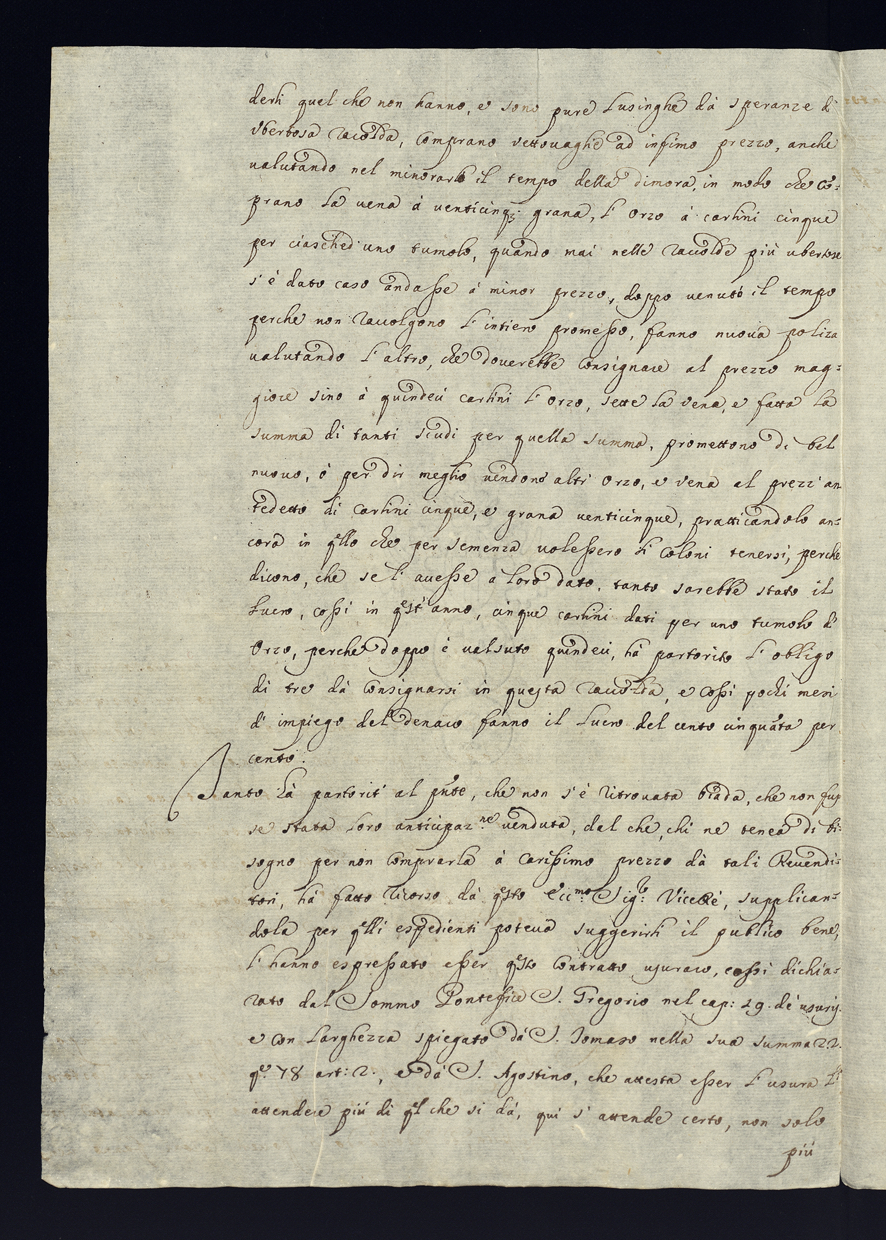 derli quel che non hanno, e sono pure Lusinghe dà speranze di
vbertosa racolda, comprano vettouaglie ad infimo prezzo, anche
valutando nel minorarlo il tempo della dimora, in modo che cō:
prano la vena à venticinq: grana, l'Orzo à carlini cinque
per ciasched'uno tumolo, quando mai nelle raccolde più ubertose
s'è dato caso andasse à minor prezzo, doppo venuto il tempo
perche non raccolgono l'intiero promesso, fanno nuoua poliza
valutando l'altro, che douerebbe consignare al prezzo mag:
giore sino à quindeci carlini l'Orzo, sette la vena, e fatta la
summa di tanti scudi per quella summa, promettono di bel
nuouo, ò per dir meglio uendono altri Orzo, e vena al prezz'an
tedetto di Carlini cinque, e grana venticinque, pratticandolo an:
cora in qllo che per semenza uolessero li Coloni tenersi, perche
dicono, che se l'auesse a loro dato, tanto sarebbe stato il
Lucro, cossì in qst'anno, cinque carlini dati per uno tumolo d'
Orzo, perche doppo è ualsuto quindeci, hà partorito l'obligo
di tre dà Consignarsi in questa raccolda, e cossì pochi mesi
d'impiego del denaro fanno il Lucro del cento cinquāta per
cento.
Tanto hà partorit' al pnte, che non s'è ritrouata biada, che non fus
se stata loro anticipaz.ne venduta, dal che, chi ne tenea di bi:
sogno per non comprarla à carissimo prezzo dà tali Reuendi:
tori, hà fatto ricorso dà qsto Ecc.mo Sig.r Vicerè, supplican:
dola per qlli espedienti poteua suggerirli il publico bene,
l'hanno espressato esser qsto Contratto usuraro, cossì dichia:
rato dal Sommo Pontefice S. Gregorio nel cap: 19. de usurij.
e con larghezza spiegato dà S. Tomaso nella sua summa 2.2.
q.e 78 art: 2., e dà S. Agostino, che attesta esser l'usura l'
attendere più di ql che si dà, qui s'attende certo, non solo
più